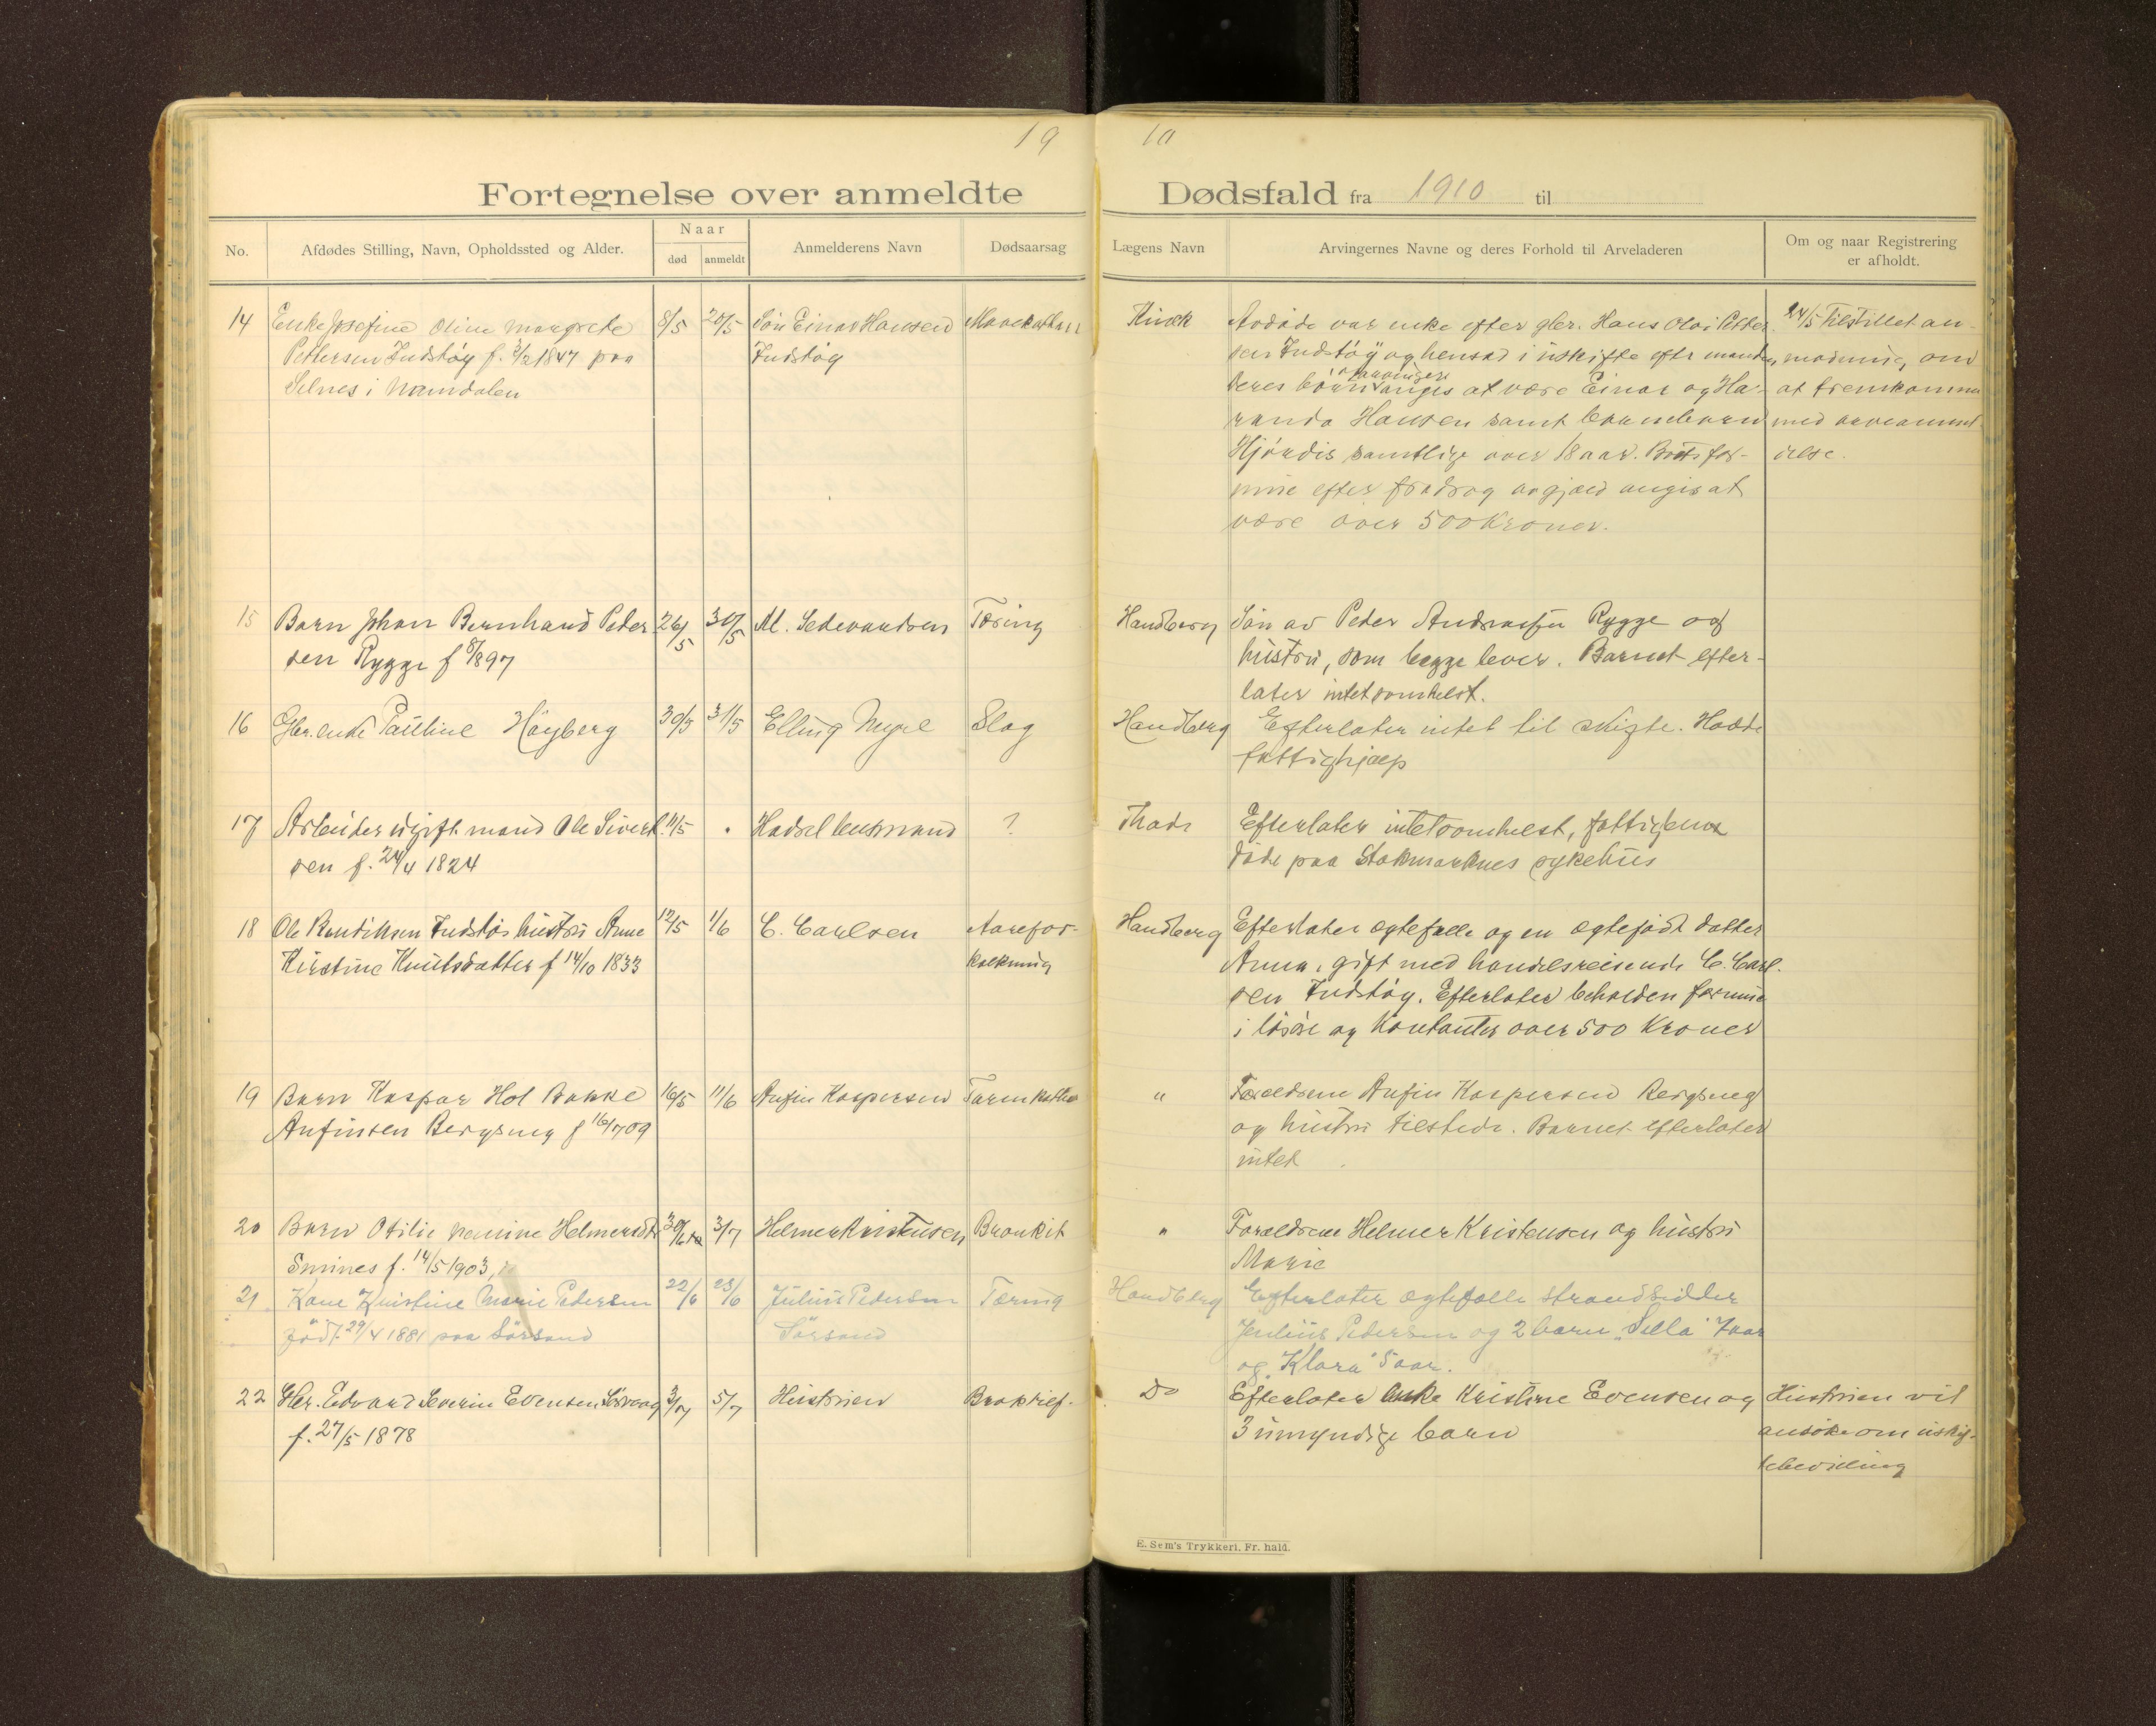 19 10
Fortegnelse over anmeldte Dødsfald fra 1910 til
No.
Afdødes Stilling, Navn, Opholdssted og Alder.
Naar
død
anmeldt
Anmelderens Navn
Dødsaarsag
Lægens Navn
Arvingernes Navne og deres Forhold til Arveladeren
Om og naar Registrering
er afholdt.
14 Enke Josefine Oline Margrete 8/5 20/5 Søn Einar Hansen
Pettersen Indstøy f. 3/2 1847 paa Indstøy
Selnes i Namdalen
Avdøde var enke efter gbr. Hans Olai Petter
sen Indstøy og hensad i uskifte efter manden,
deres børn angis at være Einar og Ha-
randa Hansen samt barnebarn
Hjørdis samtlige over 18 aar. Bots for-
mue efter fradrag av gjæld angis at
være over 500 Kroner.
24/5 Tilstillet an-
modning, om
at fremkomme
med arveanmel
delse.
15 Barn Johan Bernhard Peder 26/5 30/5 M. Sedevardsen Tæring Handberg
sen Rygge f 8/897
Søn av Peder Andreassen Rygge og
hustru, som begge lever. Barnet efter-
later intetsomhelst.
16 Gbr. enke Pauline Høyberg 30/5 31/5 Elling Myre Slag Handberg
Efterlater intet til skifte. Hadde
fattighjælp
17 Arbeider ugift mand Ole Sivert 11/5 " Hadsel lensmand ? Thode
sen f. 24/4 1824
Efterlater intetsomhelst, fattiglem
døde paa Stokmarknes sykehus
18 Ole Bendiksen Indstøs hustru Anne 12/5 1/6 C. Carlsen Aarefor- Handberg
Kirstine Knutsdatter f 14/10 1833 kalkning
Efterlater egtefælle og en egtefødt datter
Anna, gift med handelsreisende C. Carl-
sen Indstøy. Efterlater beholden formue
i løsøre og Kontanter over 500 Kroner
19 Barn Kaspar Hol Bakke 16/5 11/6 Anfin Kaspersen Tarmkatar "
Anfinsen Bergsmyg f 16/7 09
Forældrene Anfin Kaspersen Bergsmyg
og hustru tilstede. Barnet efterlater
intet
20 Barn Otilie Nanine Helmersdtr 30/6 3/7 Helmer Kristensen Bronkit "
Smines f. 14/5 1903,
Forældrene Helmer Kristensen og hustru
Marie
21 Kone Kristine Marie Pedersen 22/6 23/6 Julius Pedersen Tæring Handberg
født 29/4 1881 paa Sørsand Sørsand
Efterlater egtefælle strandsidder
Julius Pedersen og 2 barn "Sella" 7 aar
og "Klara" 5 aar.
22 Gbr. Edvard Severin Evensen Sørvaag 3/7 5/7 Hustruen Do
f. 27/5 1878
Efterlater enke Kristine Evensen og
3 umyndige barn
Hustruen vil
ansøke om uskif-
tebevilling
E. Sem's Trykkeri, Fr. hald.